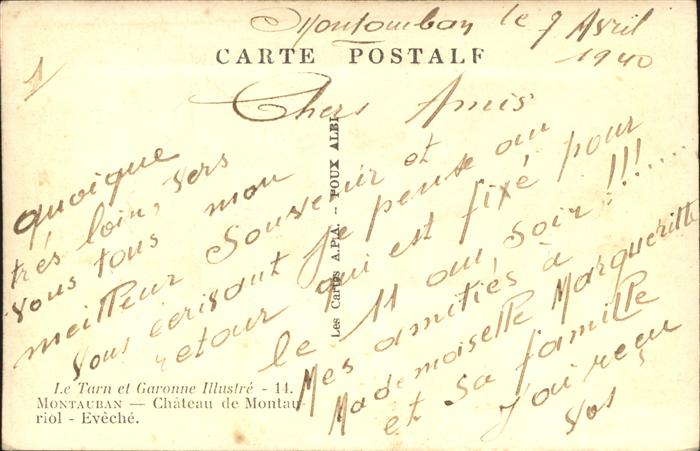 Montauban le 9 Avril
1940
CARTE POSTALE
1
Chers Amis
quoique
très loin, vers
vous tous mon
meilleur Souvenir et
vous écrivant je pense au
retour qui est fixé pour
le 11 au soir !!!.....
Mes amitiés à
Mademoiselle Marguerite
et sa famille
J'ai reçu
vos
Les Cartes A.P.A. -- POUX ALBI
Le Tarn et Garonne Illustré - 14.
MONTAUBAN — Château de Montau-
riol - Evêché.